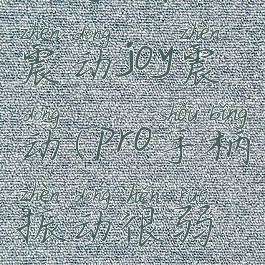 zhèn dòng zhèn
震动joy震
dòng shǒu bǐng
动(pro手柄
zhèn dòng hěn ruò
振动很弱